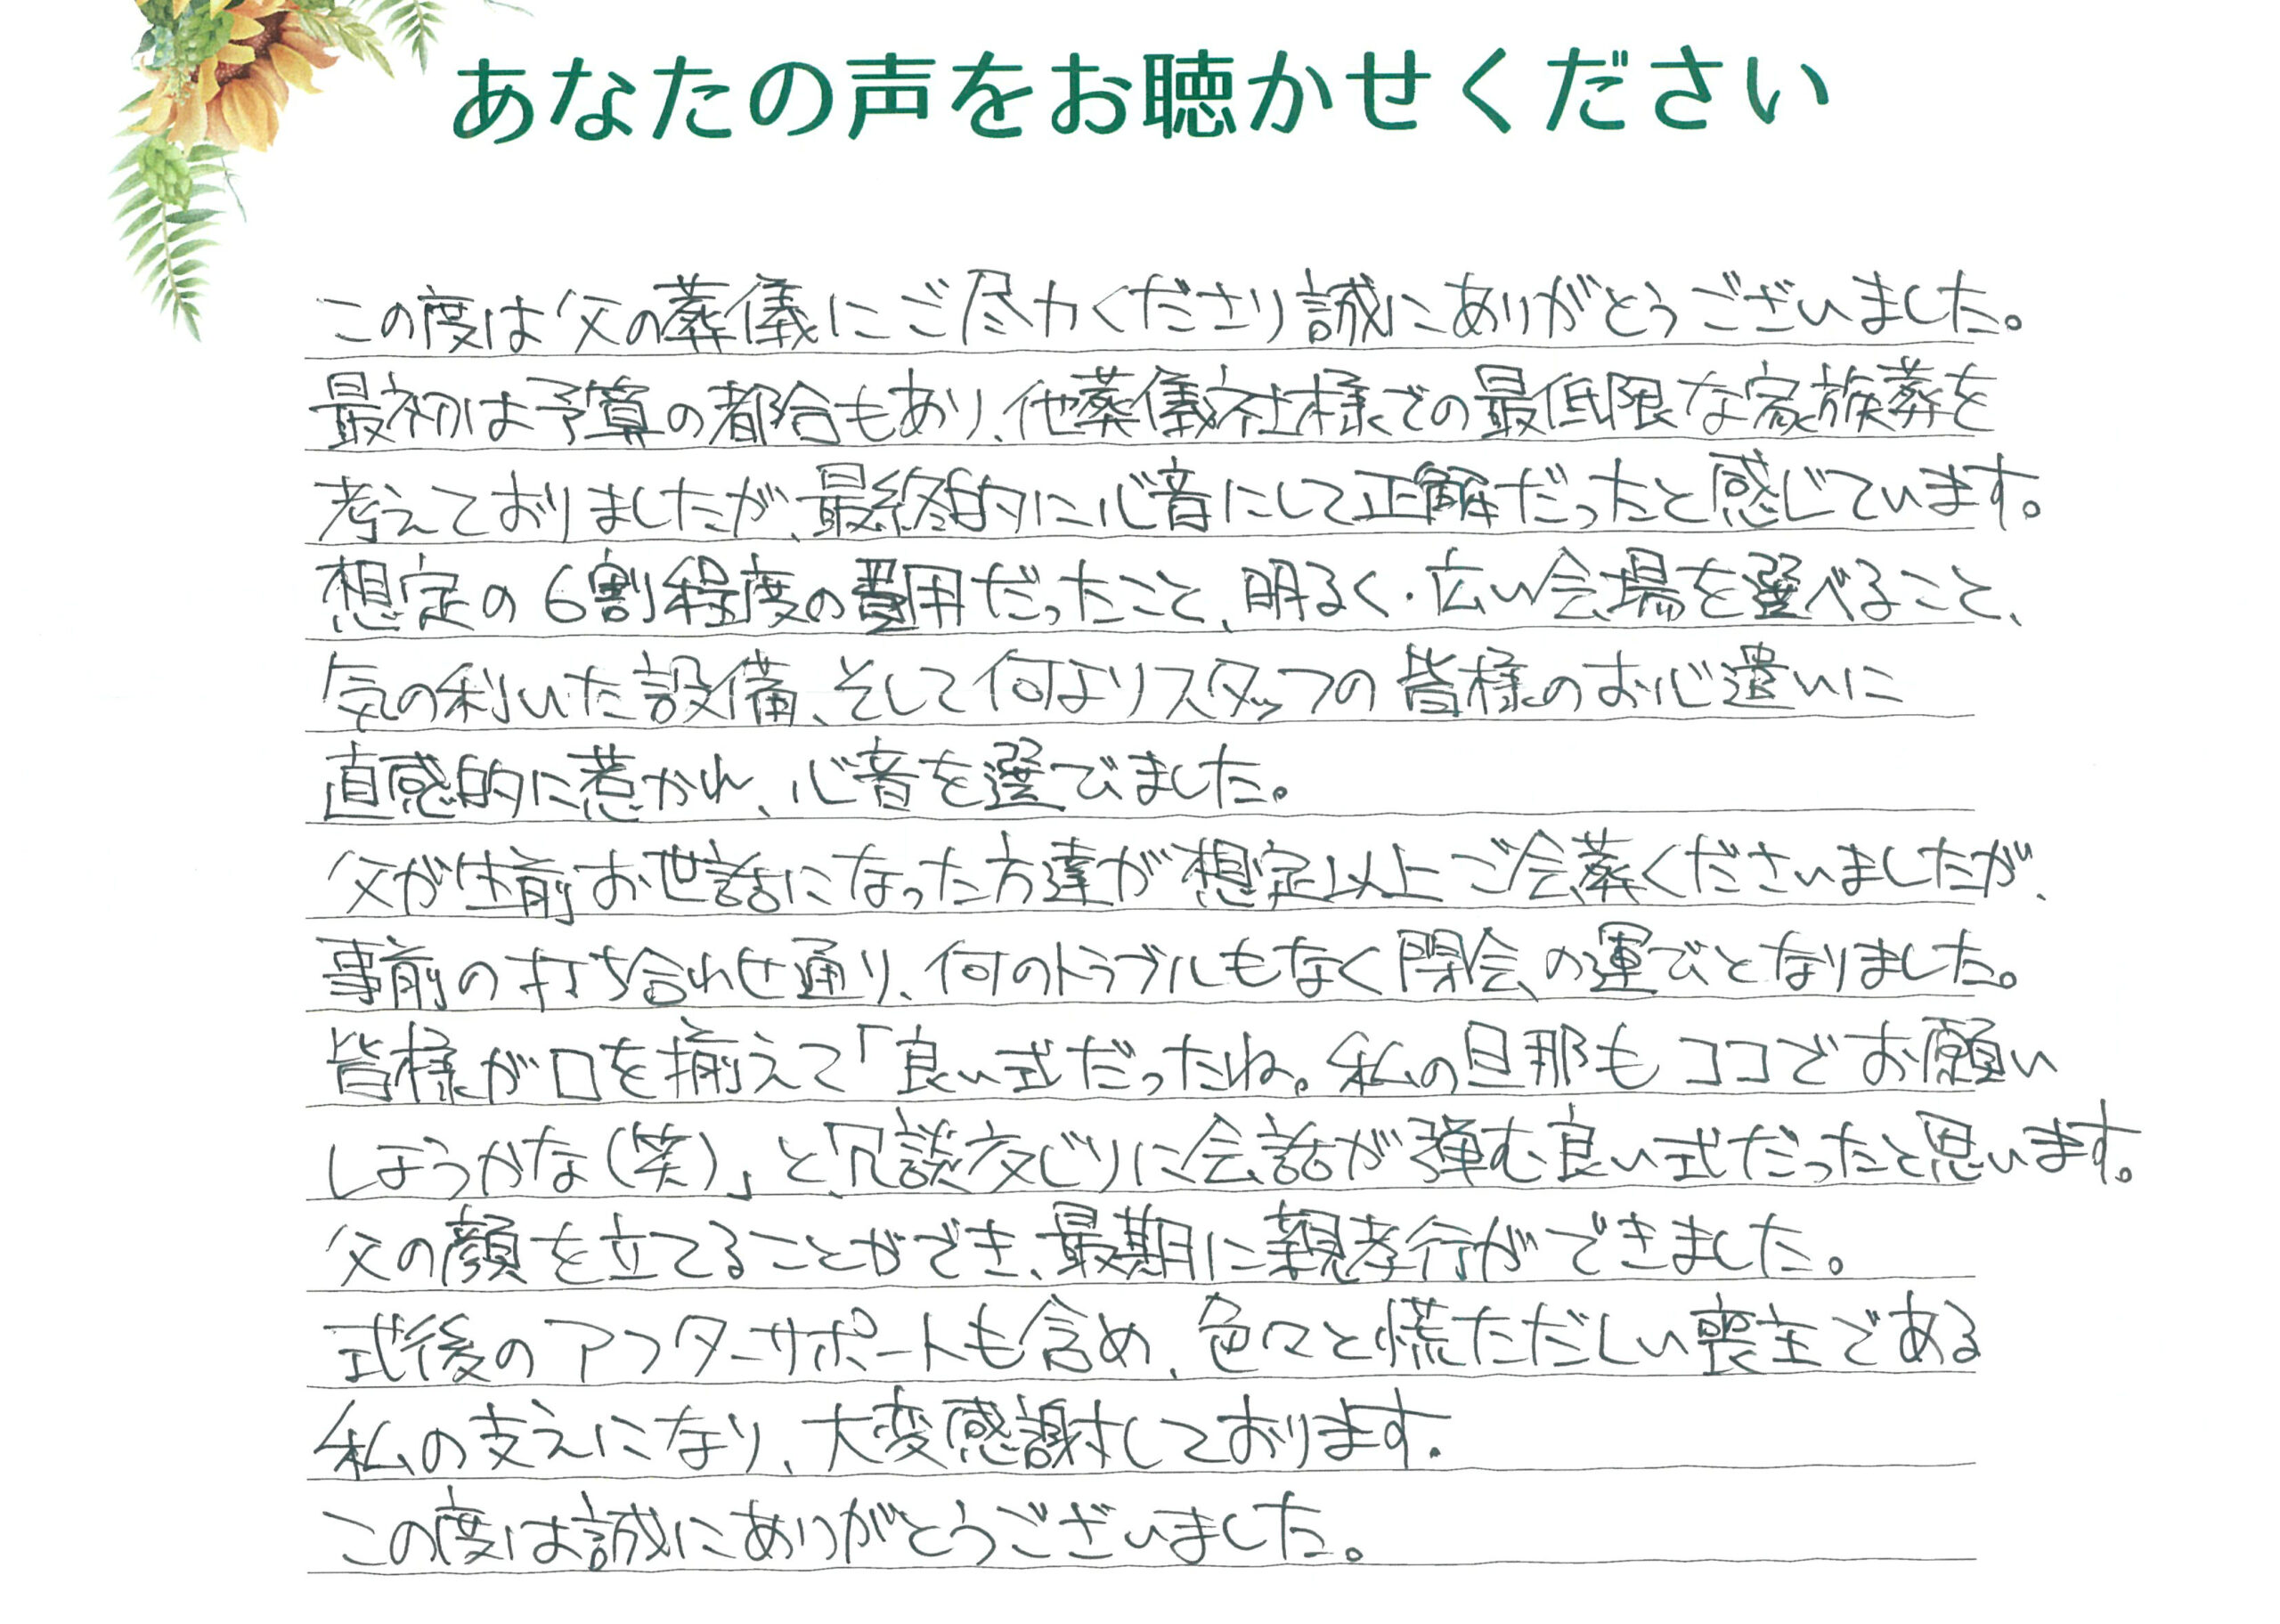 あなたの声をお聴かせください
この度は父の葬儀にご尽力くださり誠にありがとうございました。
最初は予算の都合もあり、他葬儀社様での最低限な家族葬を
考えておりましたが、最終的に心音にして正解だったと感じています。
想定の6割程度の費用だったこと、明るく・広い会場を選べること、
気の利いた設備、そして何よりスタッフの皆様のお心遣いに
直感的に惹かれ、心音を選びました。
父が生前お世話になった方達が想定以上ご会葬くださいましたが、
事前の打ち合わせ通り、何のトラブルもなく閉会の運びとなりました。
皆様が口を揃えて「良い式だったね。私の旦那もココでお願い
しようかな(笑)」と冗談交じりに会話が弾む良い式だったと思います。
父の顔を立てることができ、最期に親孝行ができました。
式後のアフターサポートも含め、色々と慌ただしい喪主である
私の支えになり、大変感謝しております。
この度は誠にありがとうございました。